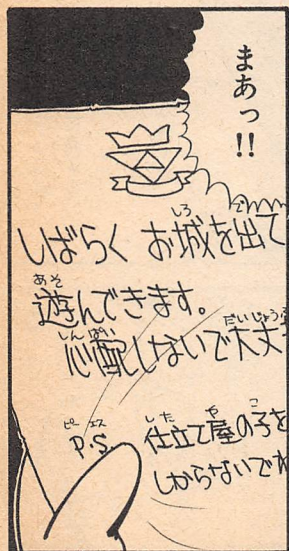 まあっ!!
しばらく お城を出て
遊んできます。
心配しないで大丈
P.S. 仕立て屋の子を
しからないでね